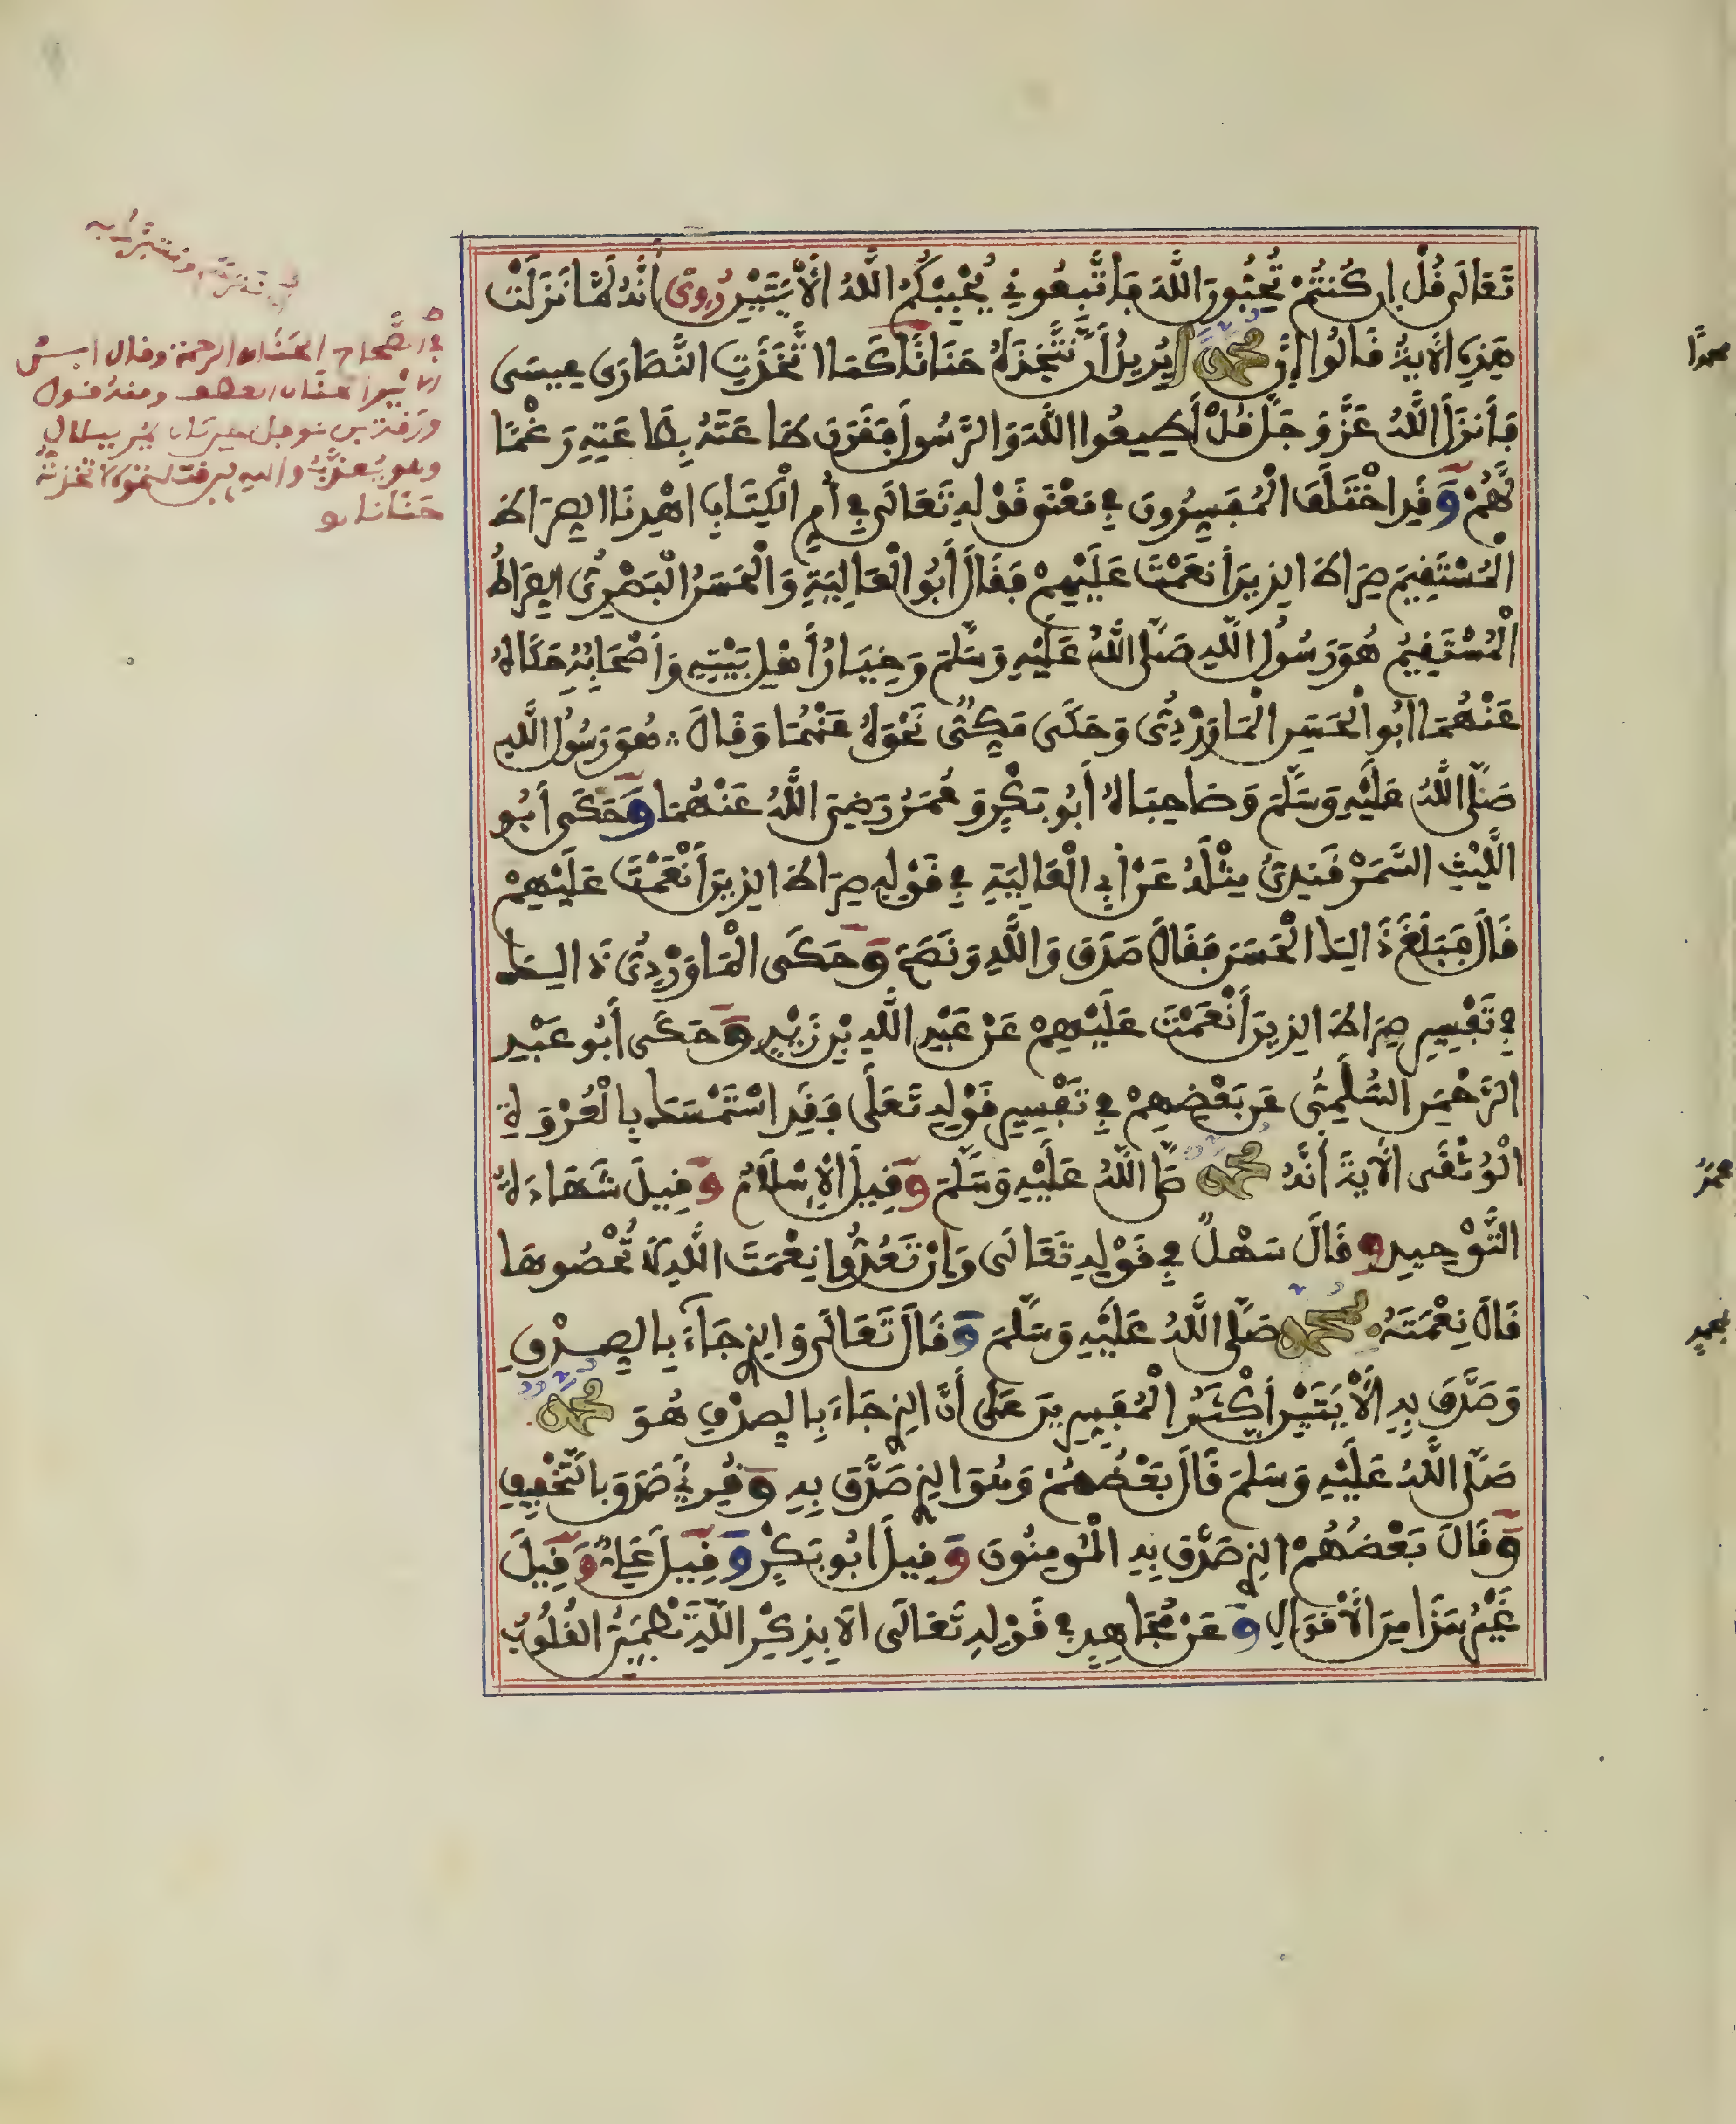 تَعَالَى قُلْ إِن كُنتُمْ تُحِبُّونَ اللَّهَ فَاتَّبِعُونِي يُحْبِبْكُمُ اللَّهُ الْآيَتَيْنِ رُوِيَ أَنَّهُ لَمَّا نَزَلَتْ
هَذِهِ الْآيَةُ قَالُوا إِنَّ مُحَمَّدًا يُرِيدُ أَن نَّتَّخِذَهُ حَنَانًا كَمَا اتَّخَذَتِ النَّصَارَى عِيسَى
فَأَنزَلَ اللَّهُ عَزَّ وَجَلَّ قُلْ أَطِيعُوا اللَّهَ وَالرَّسُولَ فَقَرَنَ طَاعَتَهُ بِطَاعَتِهِ رَغْمًا
لَّهُمْ وَقَدِ اخْتَلَفَ الْمُفَسِّرُونَ فِي مَعْنَى قَوْلِهِ تَعَالَى فِي أُمِّ الْكِتَابِ اهْدِنَا الصِّرَاطَ
الْمُسْتَقِيمَ صِرَاطَ الذِينَ أَنْعَمْتَ عَلَيْهِمْ فَقَالَ أَبُو الْعَالِيَةِ وَالْحَسَنُ الْبَصْرِيُّ الصِّرَاطُ
الْمُسْتَقِيمُ هُوَ رَسُولُ اللَّهِ صَلَّى اللَّهُ عَلَيْهِ وَسَلَّمَ وَخِيَارُ أَهْلِ بَيْتِهِ وَأَصْحَابِهِ حَكَاهُ
عَنْهُمَا أَبُو الْحَسَنِ الْمَاوَرْدِيُّ وَحَكَى مَكِّيٌّ نَحْوَهُ عَنْهُمَا وَقَالَ هُوَ رَسُولُ اللَّهِ
صَلَّى اللَّهُ عَلَيْهِ وَسَلَّمَ وَصَاحِبَاهُ أَبُو بَكْرٍ وَعُمَرُ رَضِيَ اللَّهُ عَنْهُمَا وَحَكَى أَبُو
اللَّيْثِ السَّمَرْقَنْدِيُّ مِثْلَهُ عَنْ أَبِي الْعَالِيَةِ فِي قَوْلِهِ صِرَاطَ الذِينَ أَنْعَمْتَ عَلَيْهِمْ
قَالَ فَبَلَغَ ذَالِكَ الْحَسَنَ فَقَالَ صَدَقَ وَاللَّهِ وَنَصَحَ وَحَكَى الْمَاوَرْدِيُّ ذَالِكَ
فِي تَفْسِيرِ صِرَاطَ الذِينَ أَنْعَمْتَ عَلَيْهِمْ عَنْ عَبْدِ اللَّهِ بْنِ زَيْدٍ وَحَكَى أَبُو عَبْدِ
الرَّحْمَنِ السُّلَمِيُّ عَن بَعْضِهِمْ فِي تَفْسِيرِ قَوْلِهِ تَعَلَى فَقَدِ اسْتَمْسَكَ بِالْعُرْوَةِ
الْوُثْقَى الْآيَةَ أَنَّهُ مُحَمَّدٌ صَلَّى اللَّهُ عَلَيْهِ وَسَلَّمَ وَقِيلَ الْإِسْلَامُ وَقِيلَ شَهَادَةُ
التَّوْحِيدِ وَقَالَ سَهْلٌ فِي قَوْلِهِ تَعَالَى وَإِن تَعُدُّوا نِعْمَتَ اللَّهِ لَا تُحْصُوهَا
قَالَ نِعْمَتُهُ بِمُحَمَّدٍ صَلَّى اللَّهُ عَلَيْهِ وَسَلَّمَ وَقَالَ تَعَالَى وَالذِي جَاءَ بِالصِّدْقِ
وَصَدَّقَ بِهِ الْآيَتَيْنِ أَكْثَرُ الْمُفَسِّرِينَ عَلَى أَنَّ الذِي جَاءَ بِالصِّدْقِ هُوَ مُحَمَّدٌ
صَلَّى اللَّهُ عَلَيْهِ وَسَلَّمَ قَالَ بَعْضُهُمْ وَهُوَ الذِي صَدَّقَ بِهِ وَقُرِئَ صَدَقَ بِالتَّخْفِيفِ
وَقَالَ بَعْضُهُمُ الذِي صَدَّقَ بِهِ الْمُومِنُونَ وَقِيلَ أَبُو بَكْرٍ وَقِيلَ عَلِيٌّ وَقِيلَ
غَيْرُ هَذَا مِنَ الْأَقْوَالِ وَعَنْ مُجَاهِدٍ فِي قَوْلِهِ تَعَالَى أَلَا بِذِكْرِ اللَّهِ تَطْمَئِنُّ الْقُلُوبُ
في الصحاح الحنان الرحمة وقال ابن
الاثير الحنان العطف ومنه قول
ورقة بن نوفل حين كان يمر ببلال
وهو يعذب والله لين قتلتموه لاتخذنه
حنانا
محمدًا
محمدٌ
بمحمدٍ